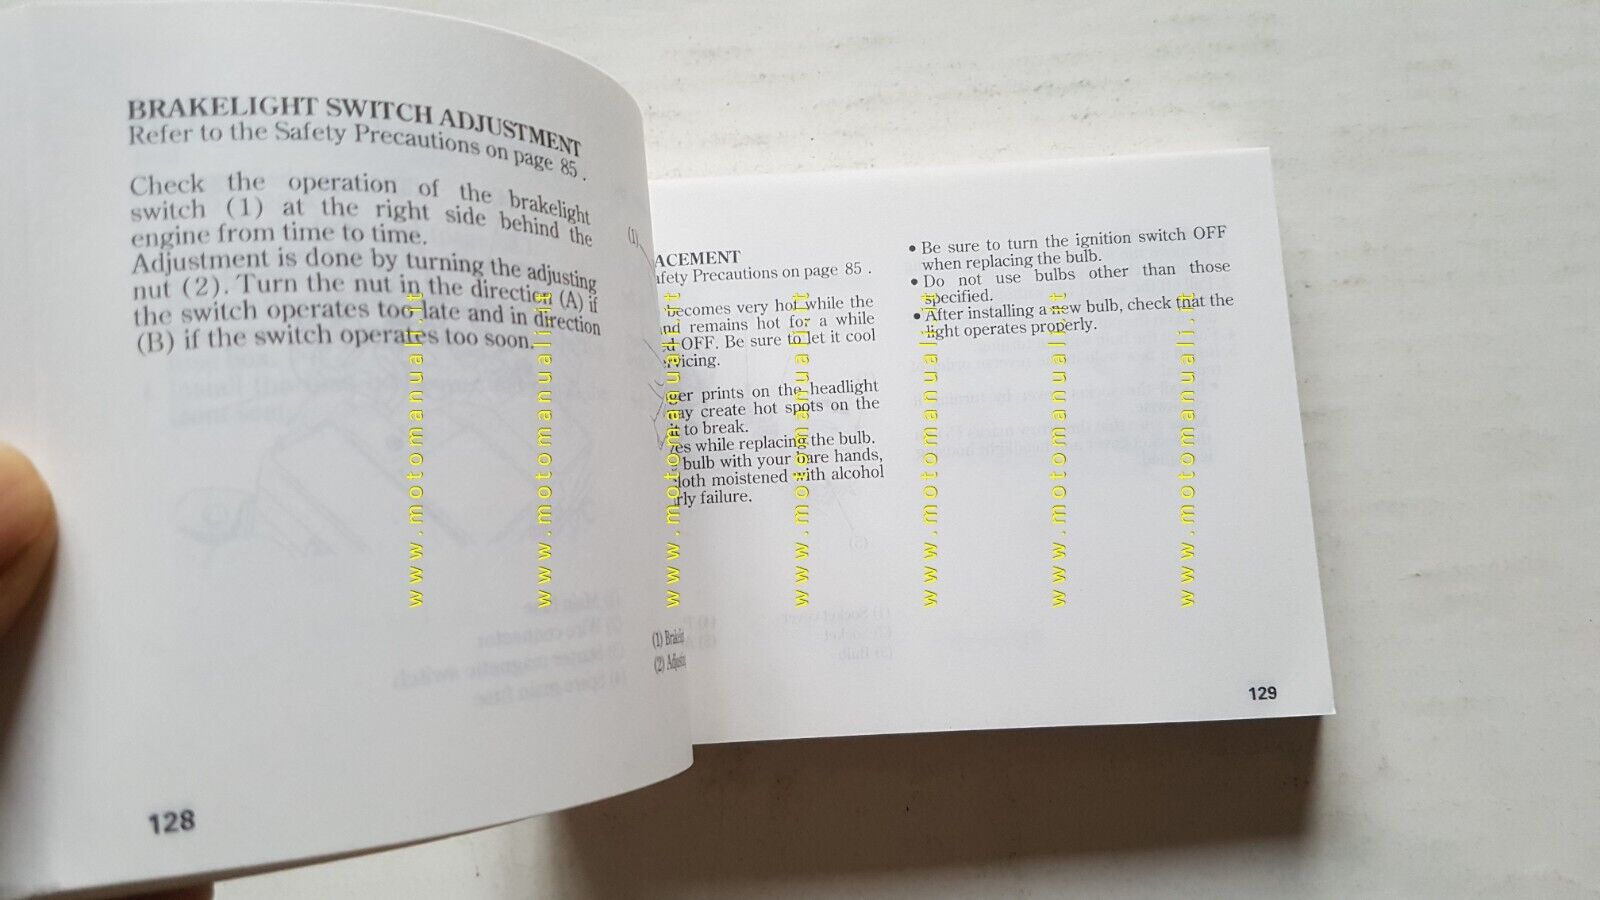 BRAKELIGHT SWITCH ADJUSTMENT
Refer to the Safety Precautions on page 85 .
Check the operation of the brakelight
switch (1) at the right side behind the
engine from time to time.
Adjustment is done by turning the adjusting
nut (2). Turn the nut in the direction (A) if
the switch operates too late and in direction
(B) if the switch operates too soon.
128
(1)
(1) Brakel
(2) Adjustin
ACEMENT
afety Precautions on page 85 .
becomes very hot while the
nd remains hot for a while
d OFF. Be sure to let it cool
ervicing.
ger prints on the headlight
ay create hot spots on the
it to break.
ves while replacing the bulb.
bulb with your bare hands,
loth moistened with alcohol
rly failure.
• Be sure to turn the ignition switch OFF
when replacing the bulb.
• Do not use bulbs other than those
specified.
• After installing a new bulb, check that the
light operates properly.
129
www.motomanuali.it
www.motomanuali.it
www.motomanuali.it
www.motomanuali.it
www.motomanuali.it
www.motomanuali.it
www.motomanuali.it